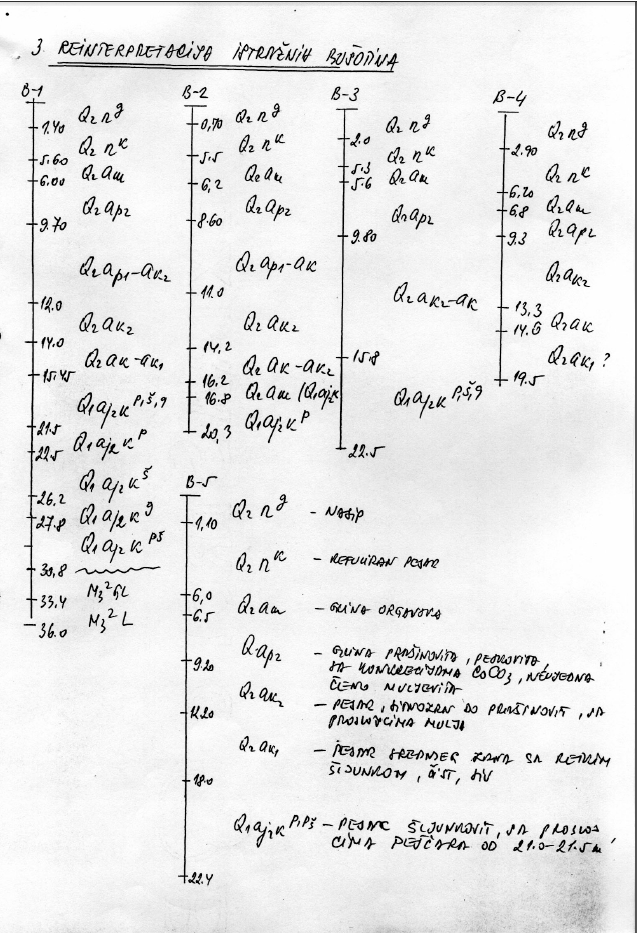 3. REINTERPRETACIJA ISTRAŽNIH BUŠOTINA
B-1
1.40 Q₂ n^g
5.60 Q₂ n^k
6.00 Q₂ am
9.70 Q₂ ap₂
12.0 Q₂ ap₁-ak₂
14.0 Q₂ ak₂
15.45 Q₂ ak-ak₁
21.5 Q₁ aj₂k^p,š,g
22.5 Q₁ aj₂k^p
26.2 Q₁ aj₂k^š
27.8 Q₁ aj₂k^g
30,8 Q₁ aj₂k^pš
33,4 M₃²GL
36.0 M₃²L
B-2
0,70 Q₂ n^g
5.5 Q₂ n^k
6,2 Q₂ am
8.60 Q₂ ap₂
11.0 Q₂ ap₁-ak
14,2 Q₂ ak₂
16.2 Q₂ ak-ak₂
16.8 Q₂ am/Q₁aj₂k
20,3 Q₁ aj₂k^p
B-3
2.0 Q₂ n^g
5.3 Q₂ n^k
5.6 Q₂ am
9.80 Q₂ ap₂
15.8 Q₂ ak₂-ak
22.5 Q₁ aj₂k^p,š,g
B-4
2.90 Q₂ n^g
6.20 Q₂ n^k
6.8 Q₂ am
9.3 Q₂ ap₂
13,3 Q₂ ak₂
14.6 Q₂ ak
19.5 Q₂ ak₁ ?
B-5
1,10 Q₂ n^g - NASIP
6,0 Q₂ n^k - REFULIRAN PESAK
6.5 Q₂ am - GLINA ORGANSKA
9.20 Q₂ ap₂ - GLINA PRAŠINOVITA, PESKOVITA,
SA KONKRECIJAMA CaCO₃,
MULJEVITA
Q₂ ak₂ - PESAK, SITNOZRN DO PRAŠINOVIT, SA
12.20 PROSLOJCIMA MULJA
18.0 Q₂ ak₁ - PESAK SREDNJEG ZRNA SA RETKIM
ŠLJUNKOM, ČIST, SIV
22.4 Q₁ aj₂k^p,pš - PESAK ŠLJUNKOVIT, SA PROSLOJ
CIMA PEŠČARA OD 21.0-21.5m